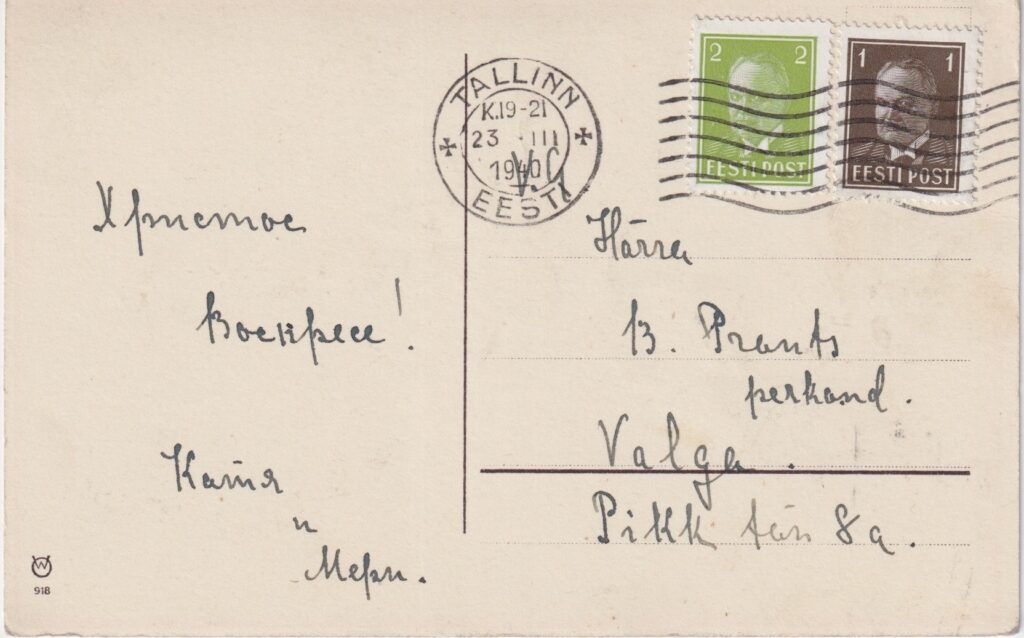 TALLINN
K.19-21
23 III
1940
EESTI
2 2
EESTI POST
1 1
EESTI POST
Христос
Воскресе!
Катя
и
Мери.
Härra
B. Prants
perkond.
Valga.
Pikk tän 8a.
W
918